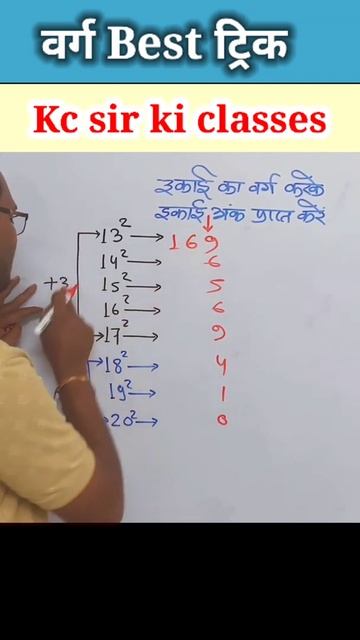 वर्ग Best ट्रिक
Kc sir ki classes
इकाई का वर्ग करके
इकाई अंक प्राप्त करें
13² → 169
14² → 6
+3 15² → 5
16² → 6
17² → 9
18² → 4
19² → 1
20² → 0